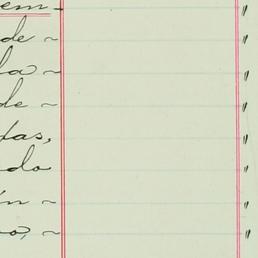 em -
de ~
la ~
de ~
das,
do
ín ~
vo, ~